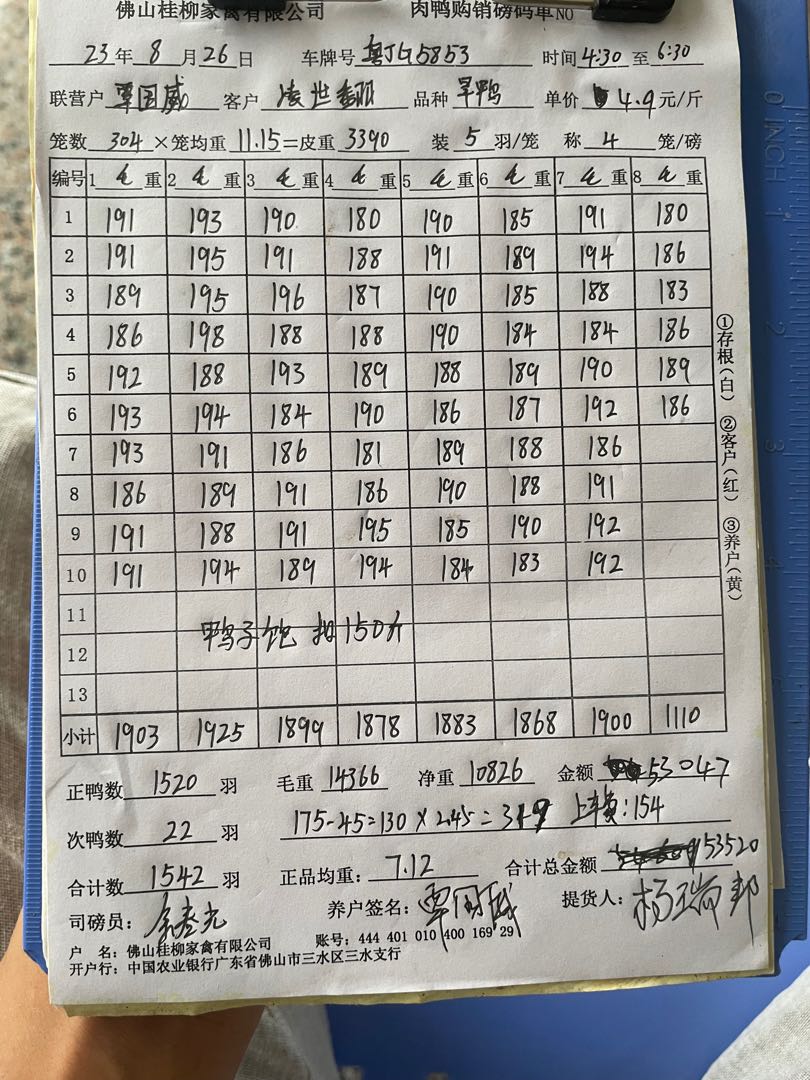 佛山桂柳家禽有限公司 肉鸭购销磅码单 NO
23年8月26日 车牌号 粤JG5853 时间 4:30 至 6:30
联营户 覃国威 客户 凌世 品种 旱鸭 单价 4.9 元/斤
笼数 304 ×笼均重 11.15 =皮重 3390 装 5 羽/笼 称 4 笼/磅
编号 1 毛 重 2 毛 重 3 毛 重 4 毛 重 5 毛 重 6 毛 重 7 毛 重 8 毛 重
1 191 193 190 180 190 185 191 180
2 191 195 191 188 191 189 194 186
3 189 195 196 187 190 185 188 183
4 186 198 188 188 190 184 184 186
5 192 188 193 189 188 189 190 189
6 193 194 184 190 186 187 192 186
7 193 191 186 181 189 188 186
8 186 189 191 186 190 188 191
9 191 188 191 195 185 190 192
10 191 194 189 194 184 183 192
11
鸭子饱 扣150斤
12
13
小计 1903 1925 1899 1878 1883 1868 1900 1110
正鸭数 1520 羽 毛重 14366 净重 10826 金额 53047
次鸭数 22 羽 175-45=130×2.45=319 上车费:154
合计数 1542 羽 正品均重: 7.12 合计总金额 53520
司磅员: 养户签名: 覃国威 提货人: 杨瑞邦
户 名: 佛山桂柳家禽有限公司 账号: 444 401 010 400 169 29
开户行: 中国农业银行广东省佛山市三水区三水支行
①存根(白) ②客户(红) ③养户(黄)
0 INCH 1 2 3 4 5